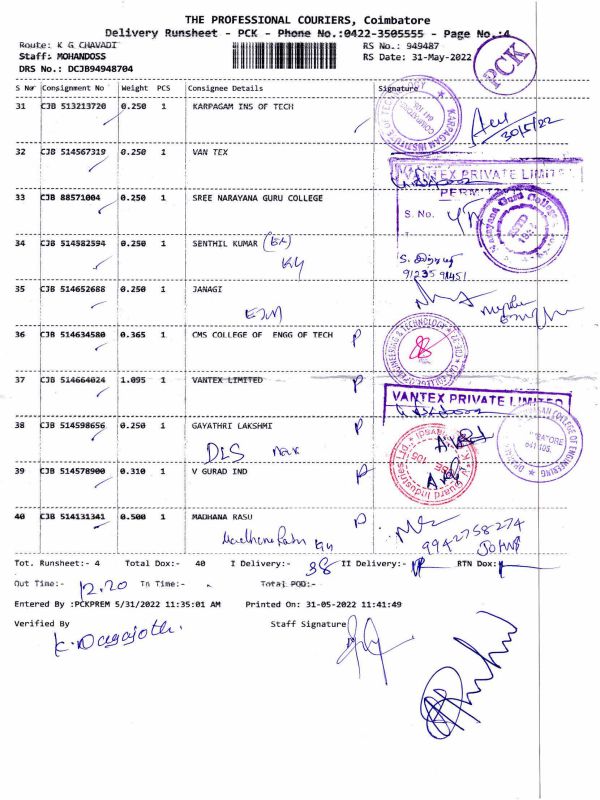 THE PROFESSIONAL COURIERS, Coimbatore
Delivery Runsheet - PCK - Phone No.:0422-3505555 - Page No.:4
Route: K G CHAVADI RS No.: 949487
Staff: MOHANDOSS RS Date: 31-May-2022
DRS No.: DCJB94948704
PCK
S No Consignment No Weight PCS Consignee Details Signature
31 CJB 513213720 0.250 1 KARPAGAM INS OF TECH
KARPAGAM INSTITUTE OF TECHNOLOGY COIMBATORE 641 105
30/5/22
32 CJB 514567319 0.250 1 VAN TEX
VANTEX PRIVATE LIMITED
PERMIT
33 CJB 88571004 0.250 1 SREE NARAYANA GURU COLLEGE
S. No.
Narayana Guru College
34 CJB 514582594 0.250 1 SENTHIL KUMAR
91235 91451
35 CJB 514652688 0.250 1 JANAGI
36 CJB 514634580 0.365 1 CMS COLLEGE OF ENGG OF TECH P
37 CJB 514664024 1.095 1 VANTEX LIMITED P
VANTEX PRIVATE LIMITED
38 CJB 514598656 0.250 1 GAYATHRI LAKSHMI P
DLS
39 CJB 514578900 0.310 1 V GURAD IND P
40 CJB 514131341 0.500 1 MADHANA RASU P
9942758274
JOHN
Tot. Runsheet:- 4 Total Dox:- 40 I Delivery:- 38 II Delivery:- RTN Dox:-
Out Time:- 12.20 In Time:- Total POD:-
Entered By :PCKPREM 5/31/2022 11:35:01 AM Printed On: 31-05-2022 11:41:49
Verified By Staff Signature